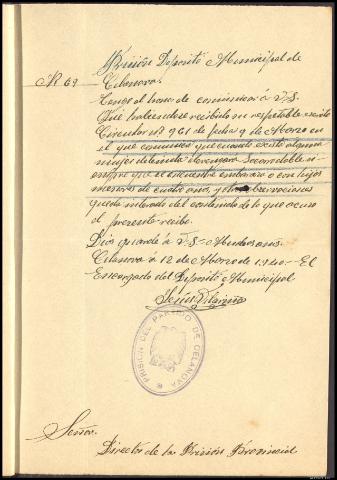 Prisión Depósito Municipal de
Nº 69
Celanova.
Tengo el honor de comunicar á V.S.
Que habiendose recibido su respetable escrito
Circular nº 961 de fecha 9 de Marzo en
el que comunica que cuando exista alguna
mujer detenida devengara Socorro doble si-
empre que se encuentre embaraza o con hijos
menores de cuatro años, y observaciones
queda interado del contenido de lo que acuso
el presente recibo.
Dios guarde á V.S. Muchos años.
Celanova á 12 de Marzo de 1.940.- El
Encargado del Depósito Municipal
PRISION DEL PARTIDO DE CELANOVA
Señor.
Director de la Prisión Provincial